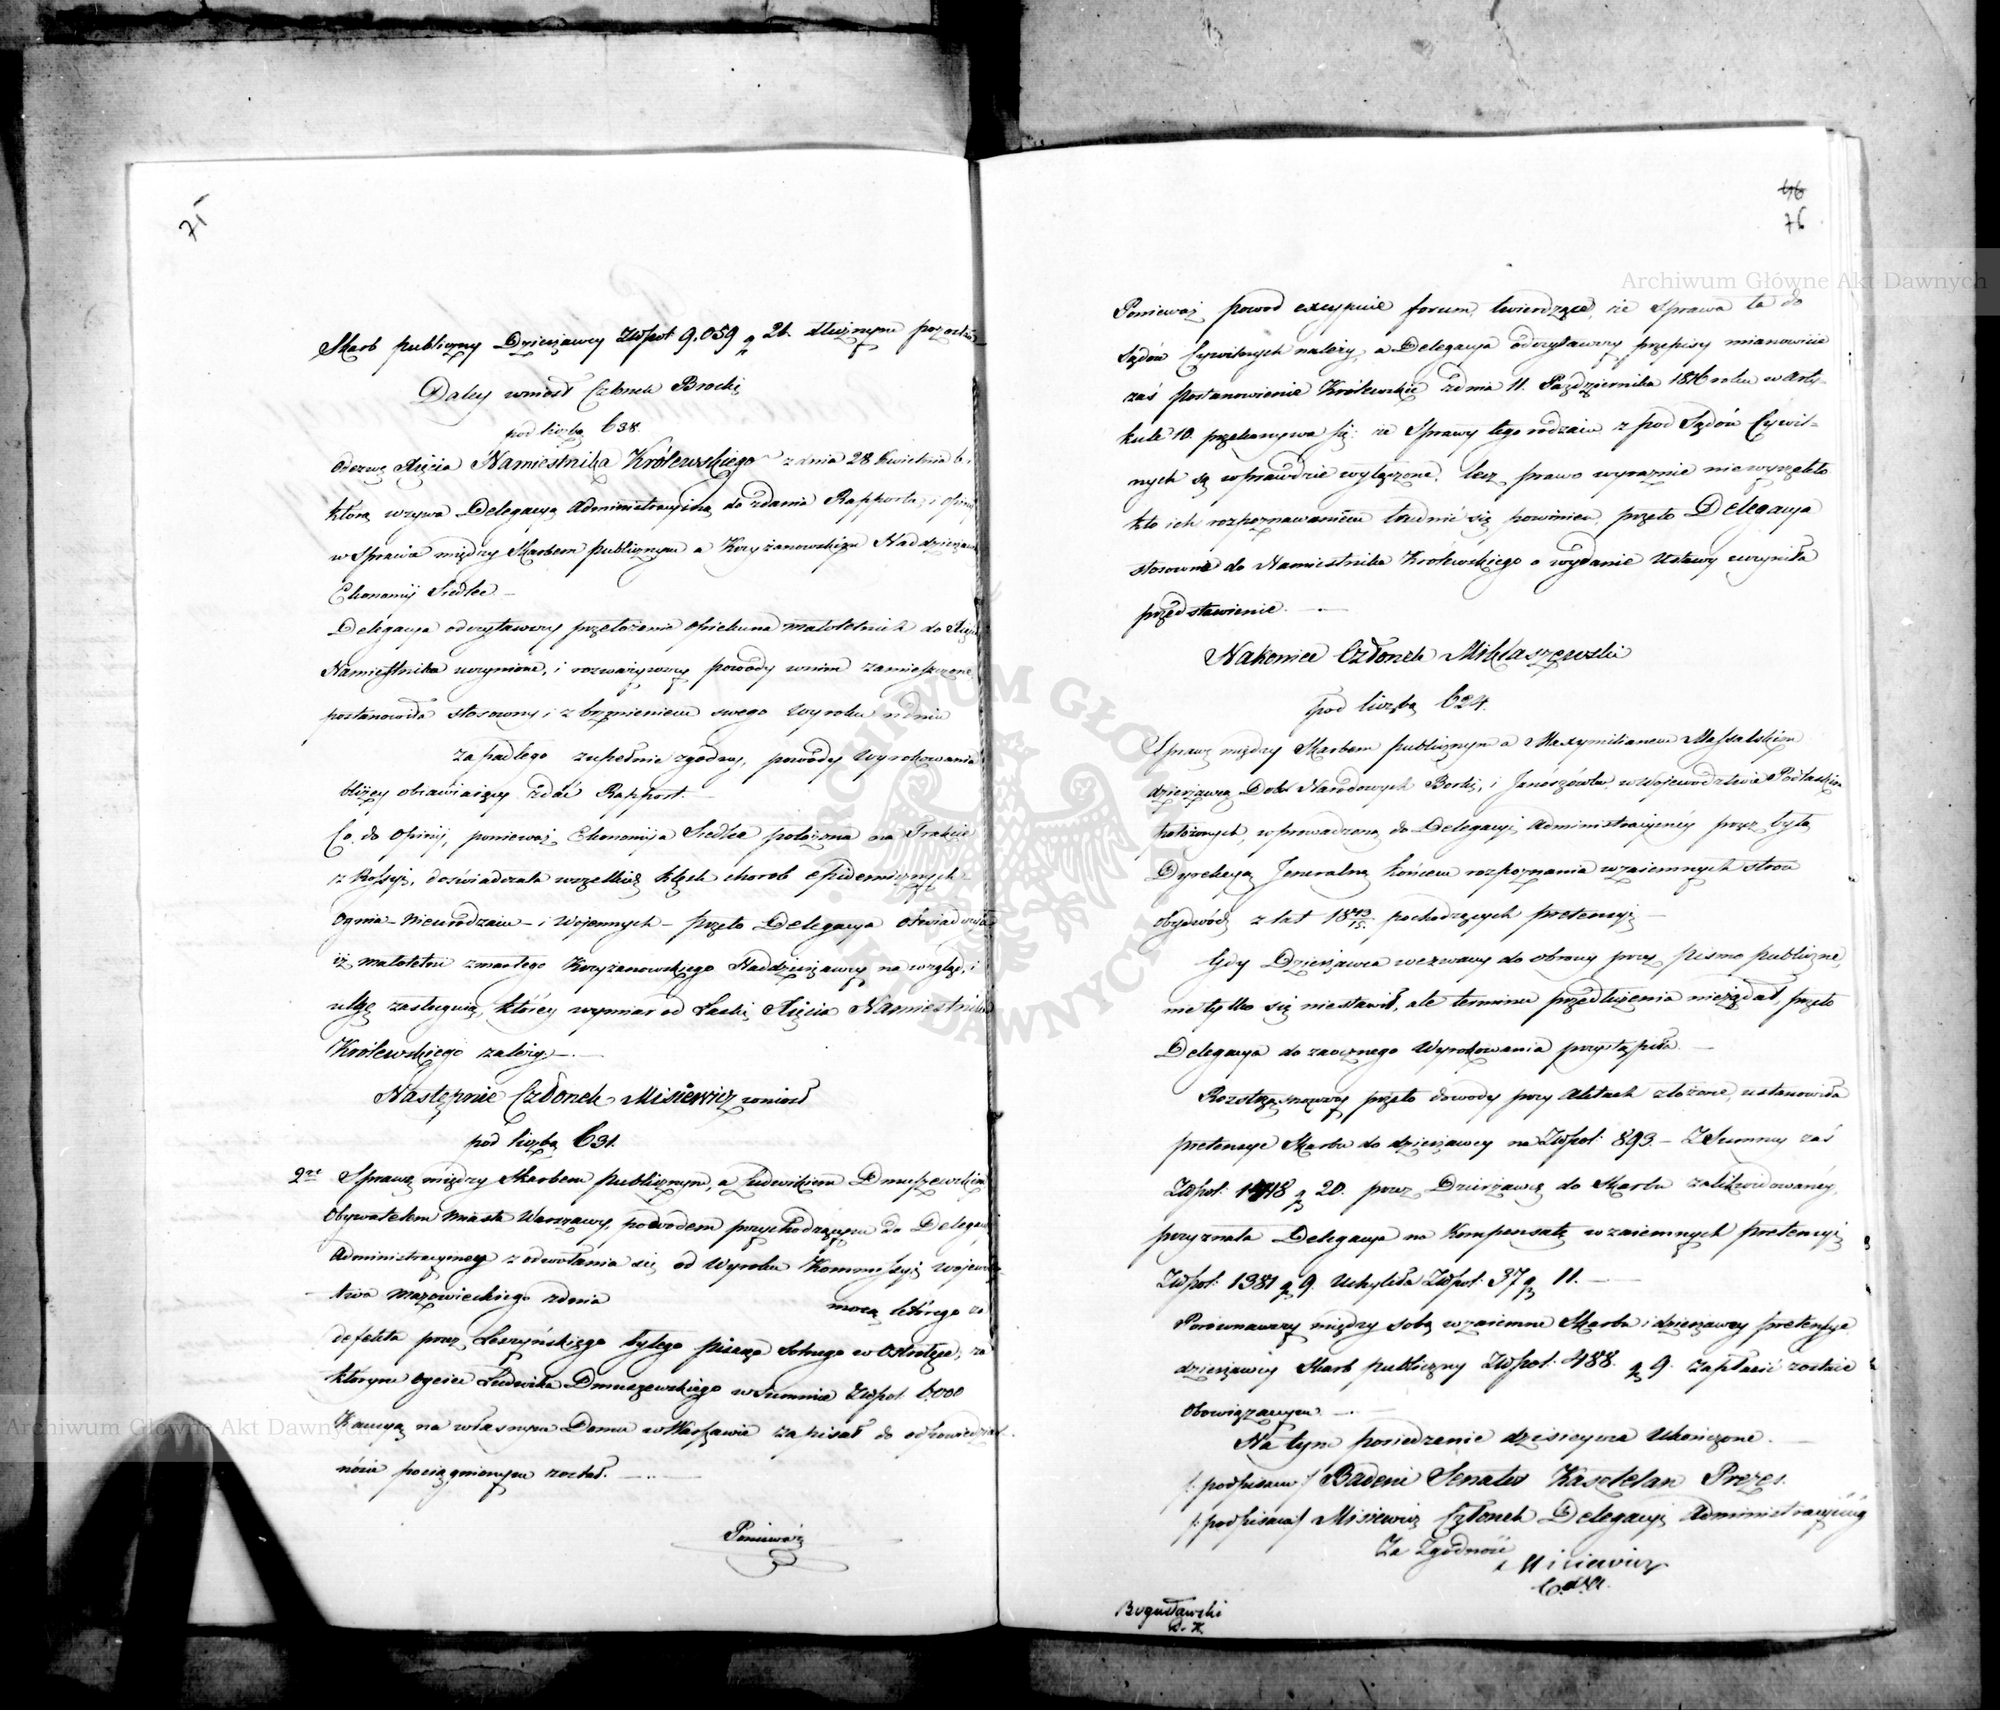 75
Skarb publiczny Dzierżawcy Złłpol 9,059 g 26. dłużnym pozostał
Daley wniosł Członek Brocki
pod liczbą 638.
Odezwę Xięcia Namiestnika Królewskiego z dnia 28 Kwietnia b.
którą wzywa Delegacyą Administracyiną do zdania Rapportu i Opinij
w Sprawie między Skarbem publicznym a Krzyżanowskim Naddzierżaw
Ekonomij Siedlce
Delegacya odczytawszy przełożenia Opiekuna małoletnich do Xięcia
Namiestnika uczynione, i rozważywszy powody w nim zamieszczone
postanowiła stosowny i z brzmieniem swego Wyroku w dniu
zapadłego zupełnie zgodny, powody Wyrokowania
bliżey obiawiaiący zdać Rapport.
Co do Opinij, ponieważ Ekonomija Siedlce położona na Trakcie
z Rossyi, doświadczała wszelkich klęsk chorob epidemicznych
Ognia – nieurodzaiu – i Wojennych – przeto Delegacya oświadcza
iż małoletni zmarłego Krzyżanowskiego Naddzierżawcy na wzgląd, i
ulgę zasługuią, którey wymiar od Łaski Xięcia Namiestnika
Królewskiego zależy.
Następnie Członek Misiewicz wniosł
pod liczbą 631.
2re Sprawę między Skarbem Publicznym, a Ludwikiem Dmuszewskim
Obywatelem Miasta Warszawy, powodem przychodzącym do Delegacyi
Administracyiney z odwołania się od Wyroku Kommissyi Wojewódz
twa Mazowieckiego z dnia mocą którego za
defekta przez Leszyńskiego byłego pisarza Solnego w Ostrołęce, za
którym oyciec Ludwika Dmuszewskiego w Summie Złłpol 6,000
Kaucyą na własnym Domu w Warszawie zapisał do odpowiedzial
ności pociągnionym został.
Ponieważ
46
76
Ponieważ powod excypuie forum, twierdząc, że Sprawa ta do
Sądów Cywilnych należy, a Delegacya odczytawszy przepisy mianowicie
zaś Postanowienie Królewskie z dnia 11. Października 1816 roku w Arty-
kule 10. przekonywa się: że Sprawy tego rodzaiu z pod Sądów Cywil-
nych są wprawdzie wyłączone, lecz prawo wyraznie nie wyrzekło
kto ich rozpoznawaniem trudnić się powinien, przeto Delegacya
stosowne do Namiestnika Królewskiego o wydanie Ustawy uczyniła
przedstawienie.
Nakoniec Członek Miklaszewski
pod liczbą 624.
Sprawę między Skarbem publicznym a Maxymilianem Massalskim
dzierżawcą Dobr Narodowych Borki, i Janoszówka, w Wojewodztwie Podlaskim
położonych, wprowadzoną do Delegacyi Administracyiney przez byłą
Dyrekcyą Jeneralną końcem rozpoznania wzaiemnych stron
obydwóch z lat 1813/15. pochodzących pretensyi
Gdy Dzierżawca wezwany do obrony przez pismo publiczne,
nie tylko się nie stawił, ale terminu przedłużenia nie żądał, przeto
Delegacya do zaocznego Wyrokowania przystąpiła.
Roztrząsnąwszy przeto dowody przy Aktach złożone, ustanowiła
pretensye Skarbu do dzierżawcy na Złłpol: 893. – Z Summy zaś
Złłpol. 1418 g 20. przez Dzierżawcę do Skarbu zalikwidowaney,
przyznała Delegacya na Kompensatę wzaiemnych pretensyi
Złłpol: 1381 g 9. Uchyliła Złłpol: 37 g 11.
Porównawszy między sobą wzaiemne Skarbu i dzierżawcy pretensye
dzierżawcy Skarb publiczny Złłpol. 488. g 9. zapłacić zostaie
obowiązanym.
Na tym posiedzenie dzisieysze ukończone.
/: podpisano / Badeni Senator Kasztelan Prezes.
/: podpisano / Misiewicz Członek Delegacyi Administracyiney
Za Zgodność
Misiewicz
C. d. A.
Bogusławski
S. K.
Archiwum Główne Akt Dawnych
Archiwum Główne Akt Dawnych
ARCHIWUM GŁÓWNE AKT DAWNYCH